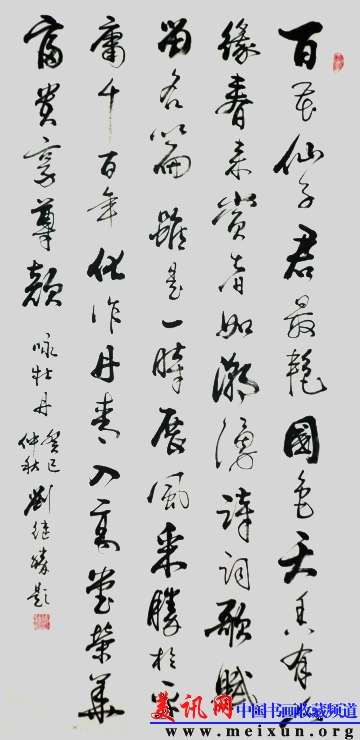 百花仙子君最艳國色天香有人
缘春来赏者如潮湧诗词歌赋
留名篇雖是一時展风采勝於平
庸千百年化作丹青入高堂荣華
富贵享尊颜
咏牡丹
癸巳
仲秋
劉继勝题
美讯网
中国书画收藏频道
www.meixun.org